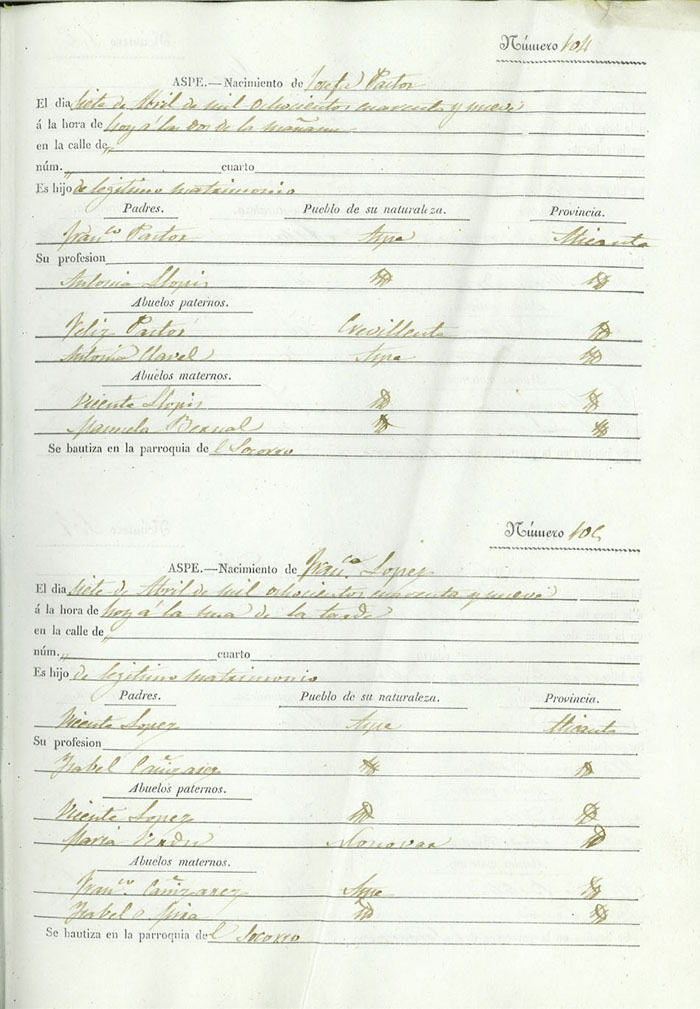 Número 104
ASPE.—Nacimiento de Josefa Pastor
El dia siete de Abril de mil ochocientos cuarenta y nueve
á la hora de hoy á las dos de la mañana
en la calle de „
núm. „ cuarto
Es hijo de legitimo matrimonio
Padres. Pueblo de su naturaleza. Provincia.
Fran.co Pastor Aspe Alicante
Su profesion
Antonia Llopis Id Id
Abuelos paternos.
Feliz Pastor Crevillente Id
Antonia Clavel Aspe Id
Abuelos maternos.
Vicente Llopis Id Id
Manuela Bernal Id Id
Se bautiza en la parroquia de l Socorro
Número
ASPE.—Nacimiento de Fran.ca Lopez
El dia siete de Abril de mil ochocientos cuarenta y nueve
á la hora de hoy á la una de la tarde
en la calle de „
núm. „ cuarto
Es hijo de legitimo matrimonio
Padres. Pueblo de su naturaleza. Provincia.
Vicente Lopez Aspe Alicante
Su profesion
Ysabel Cañizares Id Id
Abuelos paternos.
Vicente Lopez Id Id
Maria Verdu Monovar Id
Abuelos maternos.
Fran.co Cañizares Aspe Id
Ysabel Mira Id Id
Se bautiza en la parroquia de l Socorro